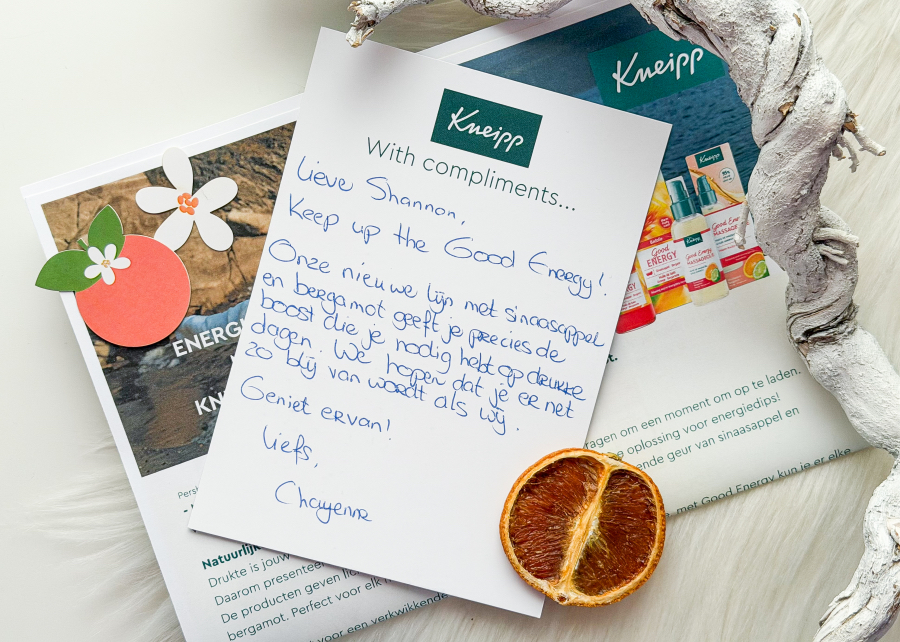 Kneipp
With compliments...
Lieve Shannon,
Keep up the Good Energy!
Onze nieuwe lijn met sinaasappel
en bergamot geeft je precies de
boost die je nodig hebt op drukke
dagen. We hopen dat je er net
zo blij van wordt als wij.
Geniet ervan!
Liefs,
Chayenne
Kneipp
Kneipp
Good
ENERGY
Kneipp
Good Energy
MASSAGEOLIE
Good Ener
MASSAGEOLIE
ENERG
KN
Pers
Natuurlijk
Drukte is jouw
Daarom presenteer
De producten geven
bergamot. Perfect voor elk
voor een verkwikkende
ragen om een moment om op te laden.
e oplossing voor energiedips!
ende geur van sinaasappel en
met Good Energy kun je er elke